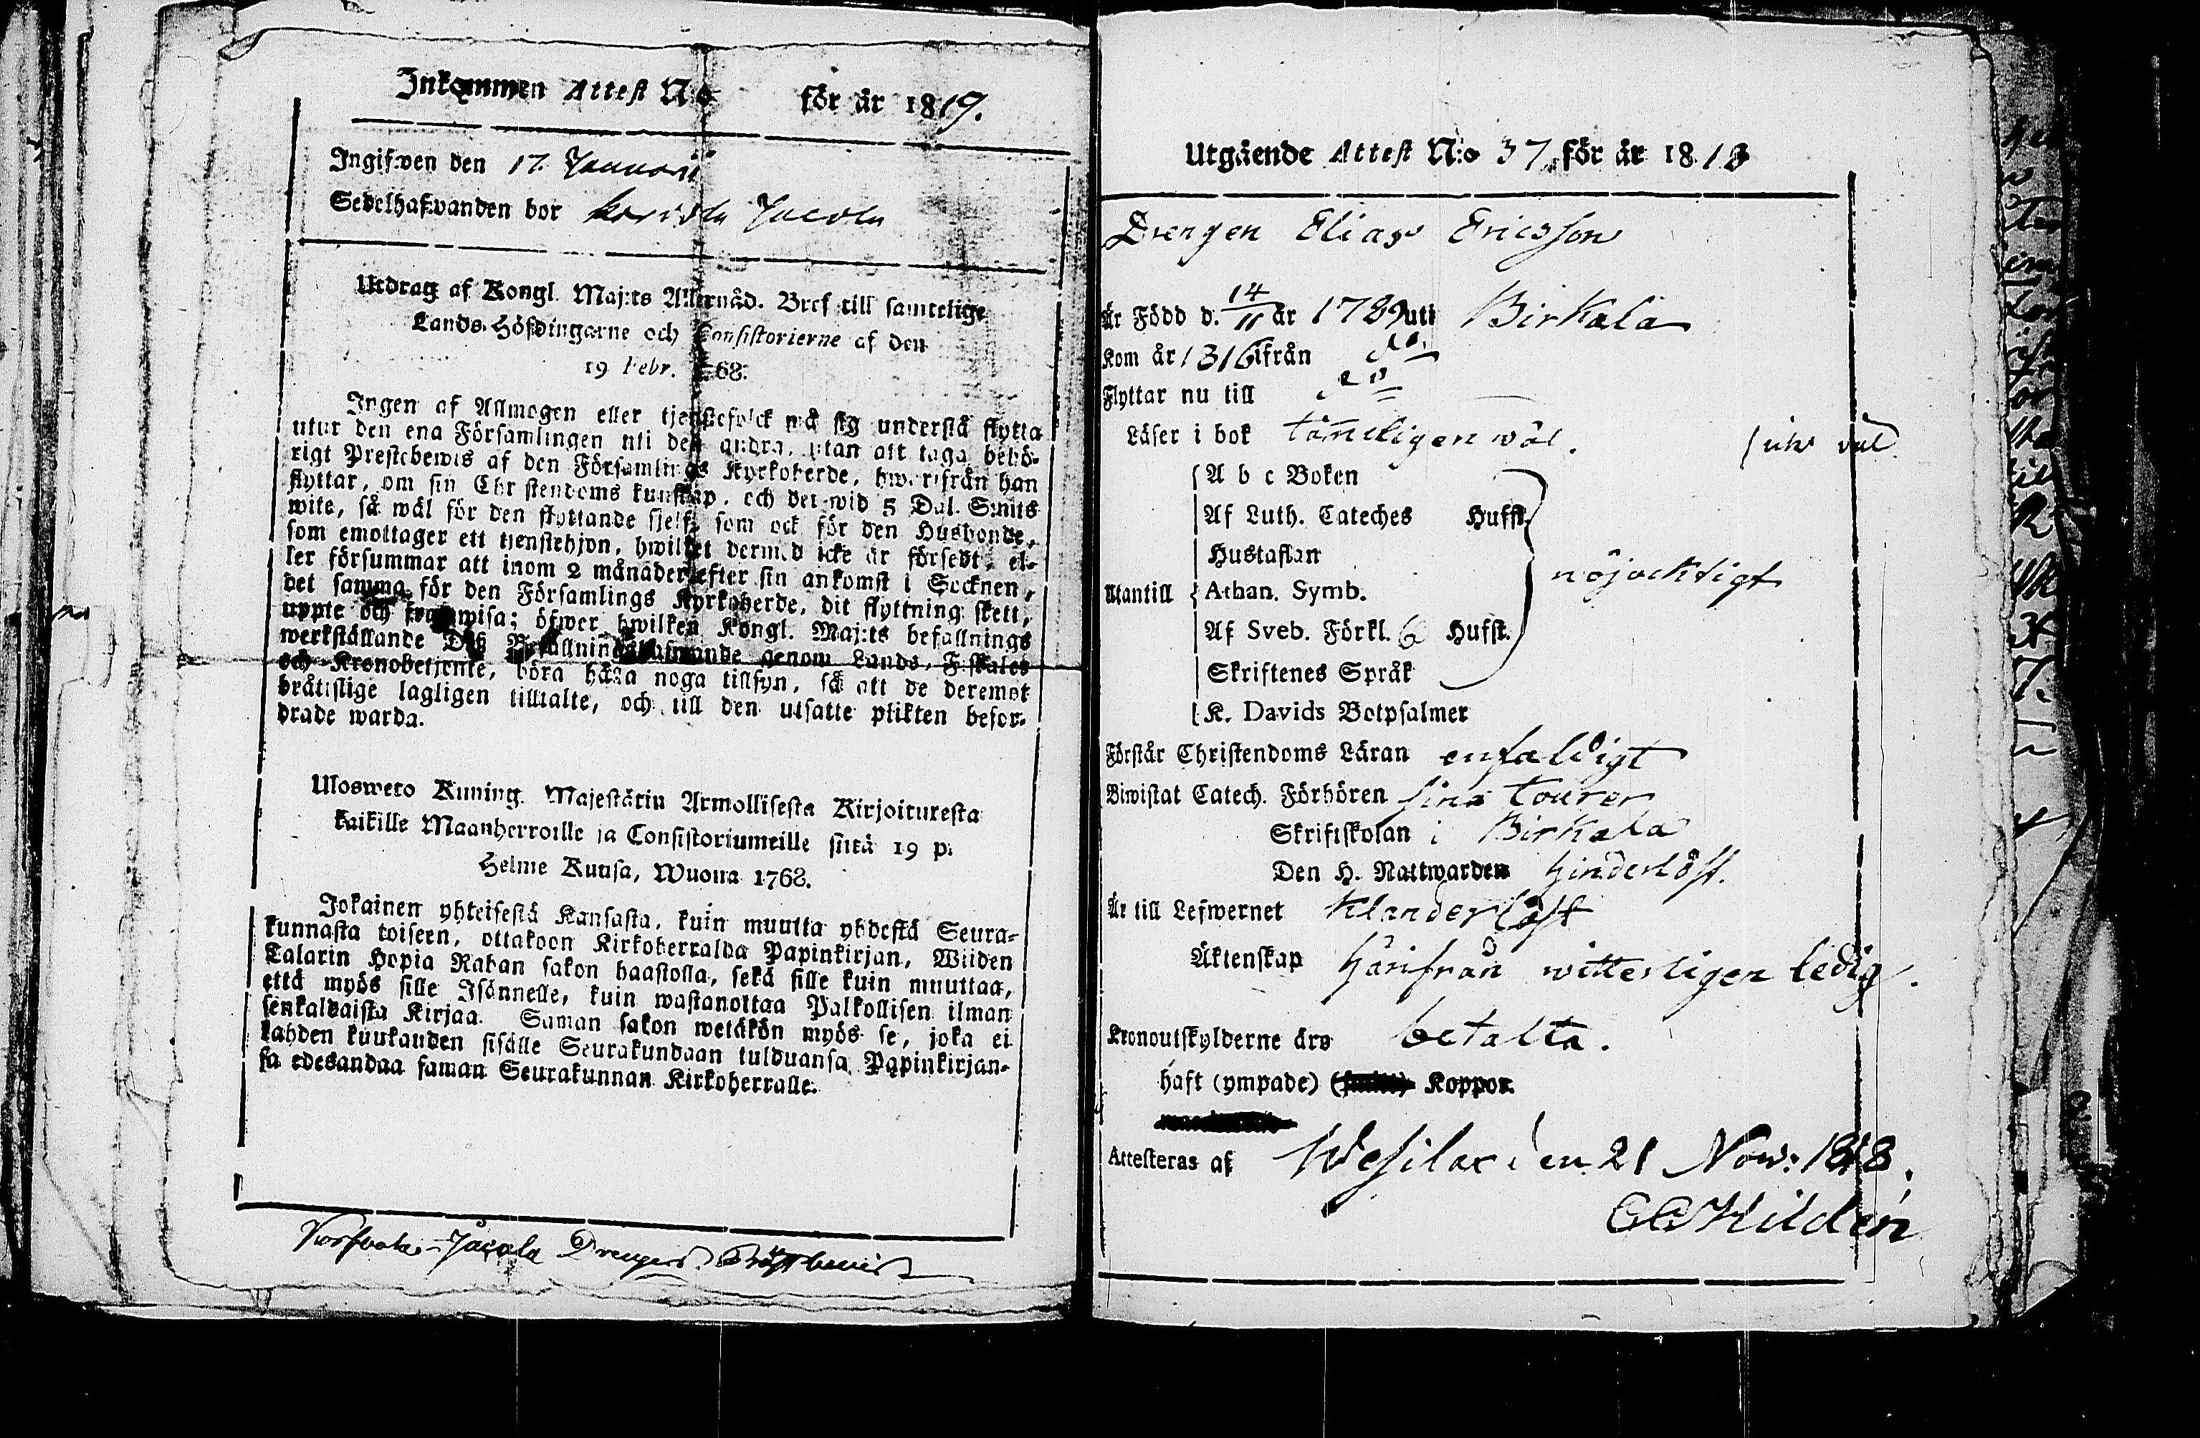 Inkommen Attest N:o för år 1819.
Ingifwen den 17. Januarii
Sedelhafwanden bor Jacola
Utdrag af Kongl. Maj:ts Allernåd. Bref till samtelige
Lands-Höfdingarne och Consistorierne af den
19 Febr. 1768.
Ingen af Allmogen eller tjenstefolck må sig understå flytta
utur den ena Församlingen uti den andra, utan att taga behö-
rigt Prestebewis af den Församlings Kyrkoherde, hwarifrån han
flyttar, om sin Christendoms kunskap, och det wid 5 Dal. S:mts
wite, så wäl för den flyttande sjelf, som ock för den Husbonde,
som emottager ett tjenstehjon, hwilket dermed icke är försedt, el-
ler försummar att inom 2 månader efter sin ankomst i Socknen,
det samma för den Församlings Kyrkoherde, dit flyttning skett,
uppte och framwisa; öfwer hwilken Kongl. Maj:ts befallnings
werkställande Dess Befallningshafwande genom Lands-Fiskaler
och Kronobetjente, böra hålla noga tillsyn, så att de deremot
bråttslige lagligen tilltalte, och till den utsatte plikten befor-
drade warda.
Ulosweto Kuning. Majestätin Armollisesta Kirjoituresta
kaikille Maanherroille ja Consistoriumeille siitä 19 p:
Helme Kuusa, Wuonna 1768.
Jokainen yhteisestä Kansasta, kuin muutta yhdestä Seura-
kunnasta toiseen, ottakoon Kirkoherralda Papinkirjan, Wiiden
Talarin Hopia Rahan sakon haastolla, sekä sille kuin muuttaa,
että myös sille Isännelle, kuin wastanottaa Palkollisen ilman
senkaldaista Kirjaa. Saman sakon wetäkön myös se, joka ei
kahden kuukauden sisälle Seurakundaan tulduansa Papinkirjan-
sa edesandaa saman Seurakunnan Kirkoherralle.
Jacola Drengens
Utgående Attest N:o 37 för år 1818
Drengen Elias Ericsson
Är Född d. 14/11 år 1789 uti Birkala
Kom år 1816 ifrån do.
Flyttar nu till do
Läser i bok tämeligen wäl.
A b c Boken
Af Luth. Cateches Hufst.
Hustaflan
Utantill Athan. Symb. nöjacktigt
Af Sveb. Förkl. 6 Hufst.
Skriftenes Språk
K. Davids Botpsalmer
Förstår Christendoms Läran enfaldigt
Biwistat Catech. Förhören sina tourer
Skriftskolan i Birkala
Den H. Nattwarden hinderlöst.
Är till Lefwernet Klanderlöst
Äktenskap härifrån witterligen ledig.
Kronoutskylderne äro betalta.
haft (ympade) Koppor.
Attesteras af Wesilax den 21 Nov: 1818.
Hildén